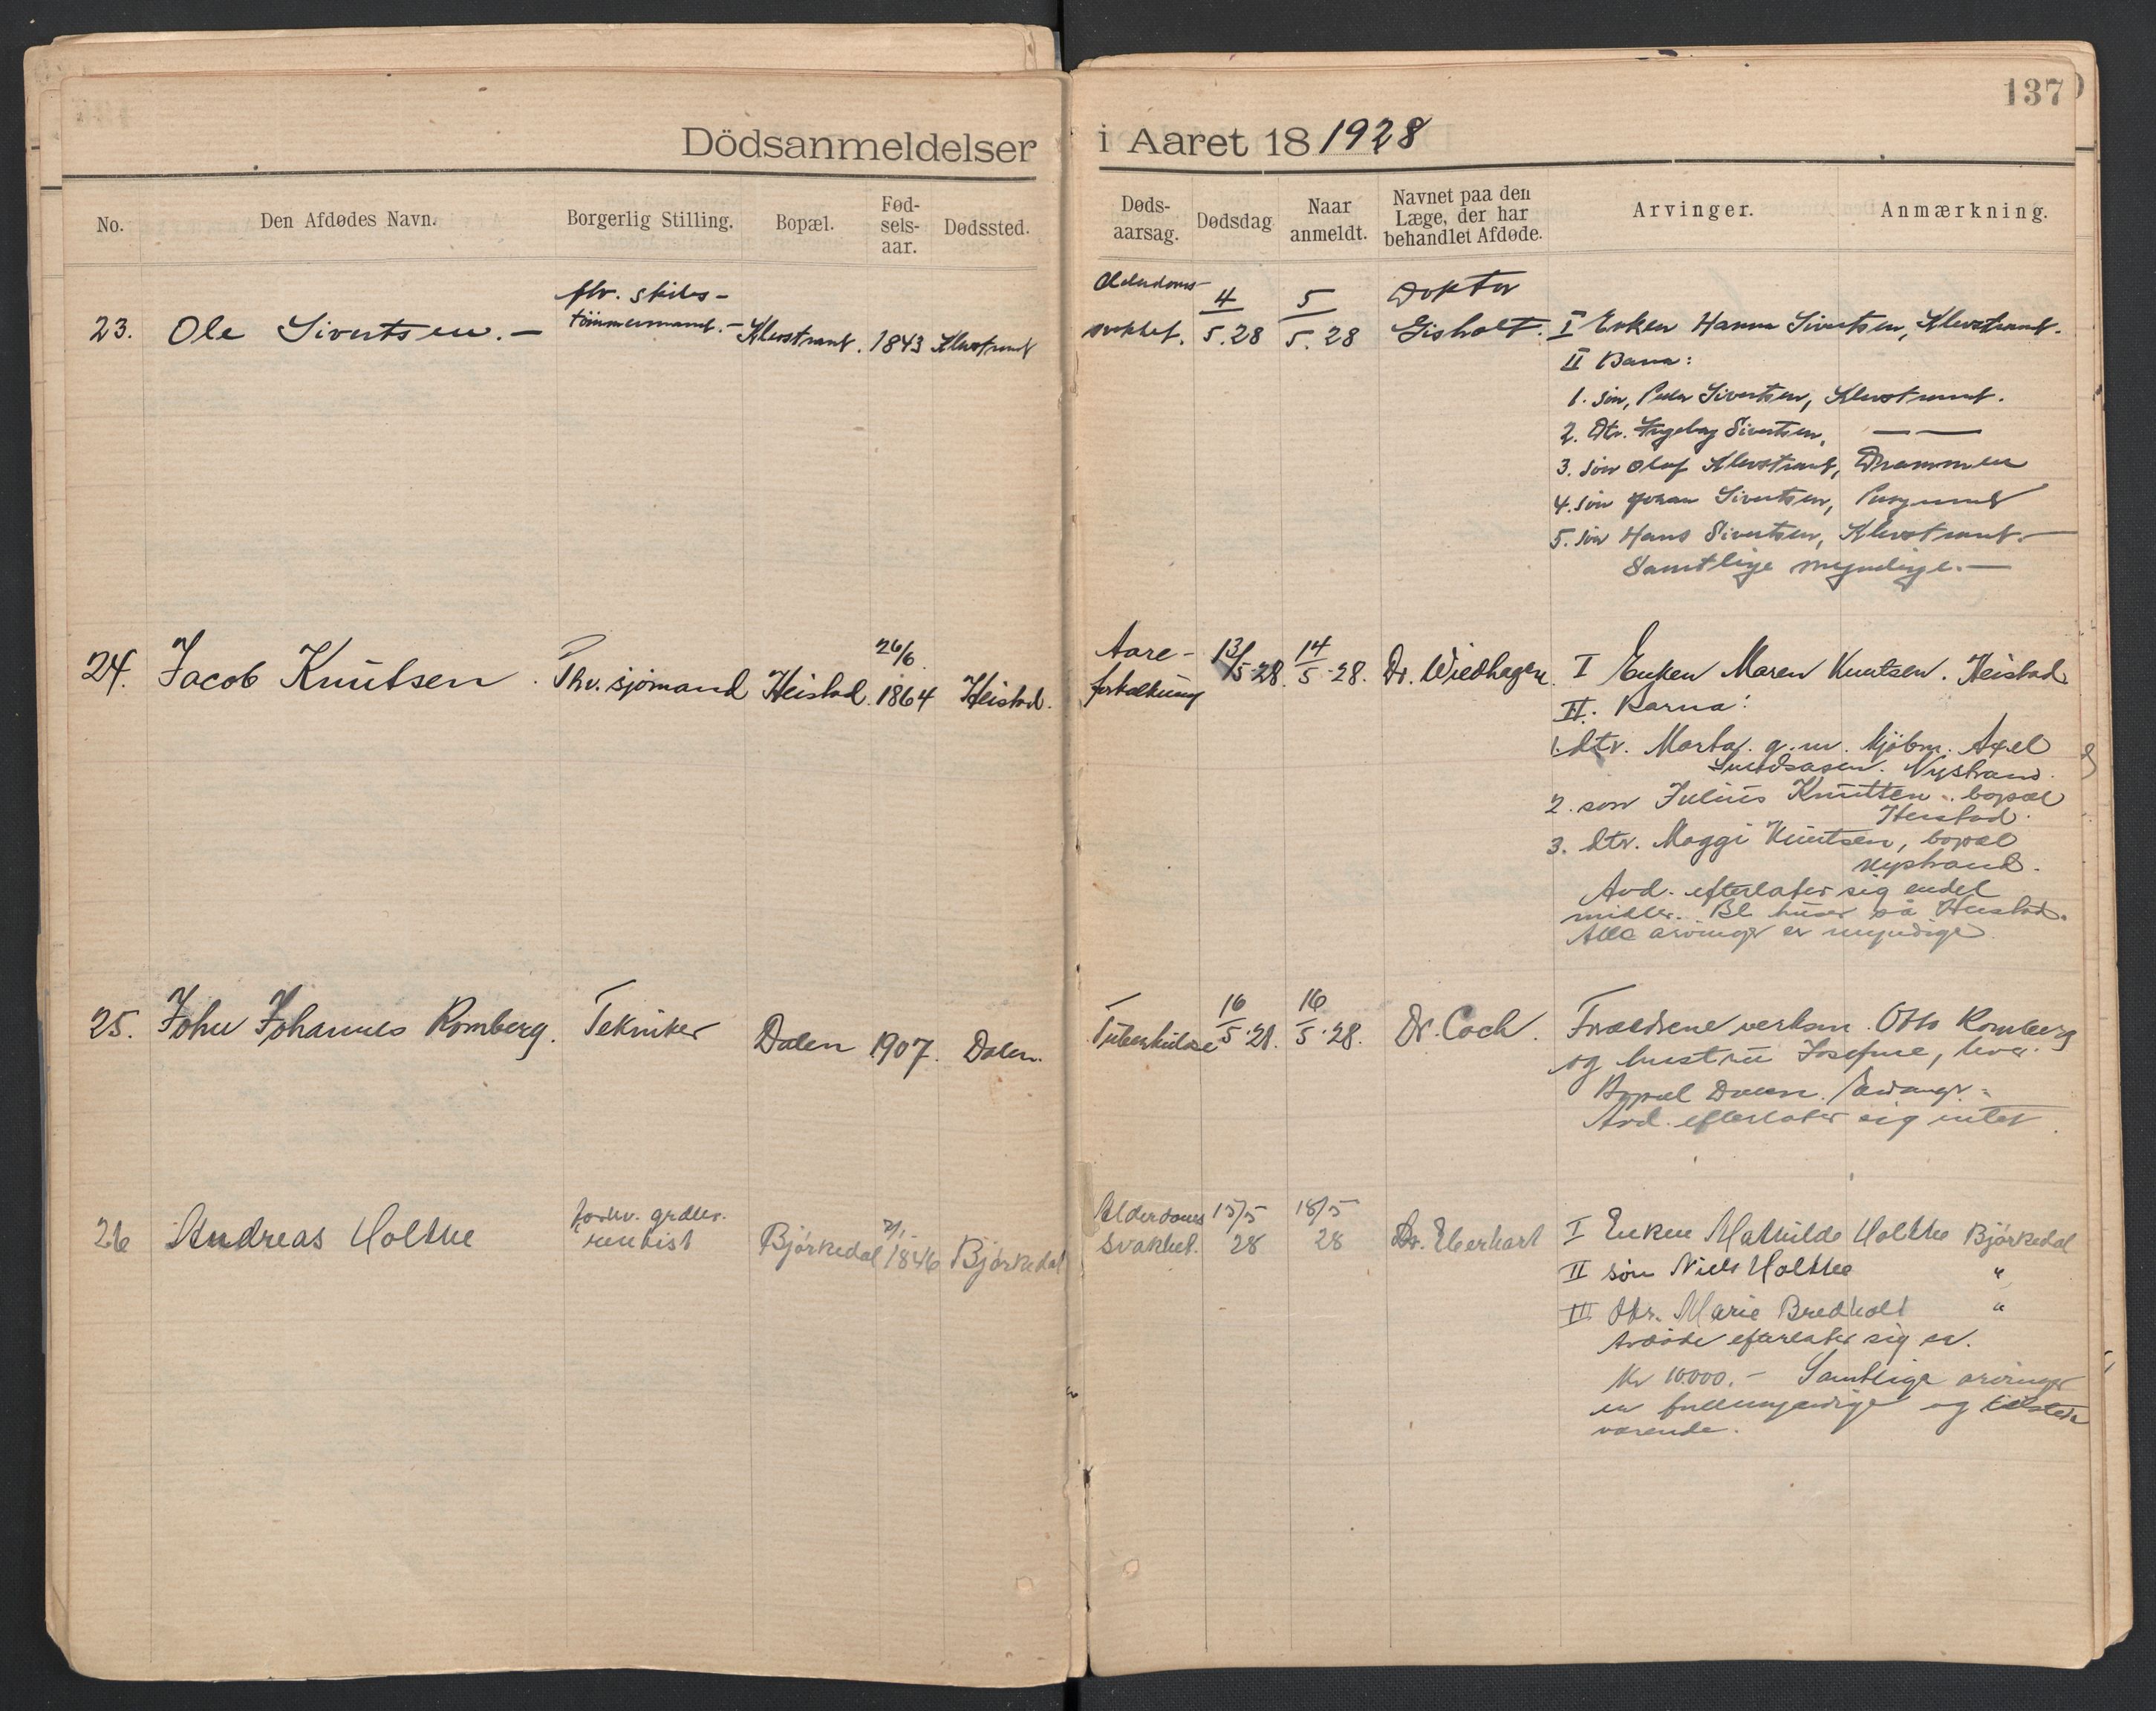 137
Dödsanmeldelser i Aaret 18 1928
No. Den Afdødes Navn. Borgerlig Stilling. Bopæl. Fød-sels-aar. Dødssted. Døds-aarsag. Dødsdag Naar anmeldt. Navnet paa den Læge, der har behandlet Afdøde. Arvinger. Anmærkning.
23. Ole Sivertsen. –
fhv. skibs-
tømmermand. –
Klevstrand. 1843 Klevstrand
Alderdoms-
svakhet.
4/5.28
5/5.28
Doktor
Gisholt.
I Enken Hanna Sivertsen, Klevstrand.
II Barna:
1. søn, Peder Sivertsen, Klevstrand.
2. Dtr. Ingeborg Sivertsen, — —
3. søn Olaf Klevstrand, Drammen
4. søn Johan Sivertsen, Porsgrund
5. søn Hans Sivertsen, Klevstrand. –
Samtlige myndige. –
24. Jacob Knutsen.
Fhv. sjömand Heistad. 26/6 1864 Heistad.
Aare-
forkalkning
13/5-28.
14/5-28.
Dr. Wiedhagen
I Enken Maren Knutsen. Heistad.
II. Barna:
1. dtr. Marta. g.m. Axel
Nystrand.
2. søn Julius Knutsen. bopæl
Heistad.
3. dtr. Maggi Knutsen, bopæl
Nystrand.
Avd. efterlater sig endel
midler. Bl huser på Heistad.
Alle arvinger er myndige
25. John Johannes Romberg.
Tekniker Dalen 1907. Dalen.
Tuberkulose
16/5.28.
16/5.28.
Dr. Coch.
Forældrene verksm. Otto Romberg
og hustru Josefine, lever.
Bopæl Dalen.
Avd. efterlater sig intet.
26 Andreas Holthe
forhv. grdbr.
rentist
Björkedal 1846 Björkedal
Alderdoms
svakhet.
15/5
28
18/5
28
Dr. Eberhart
I Enken Mathilde Holthe Björkedal
II søn Niels Holthe "
III dtr. Marie Bredholt "
Avdöde efterlater sig ca.
Kr 10.000. – Samtlige arvinger
er fuldmyndige og tilstede
værende.